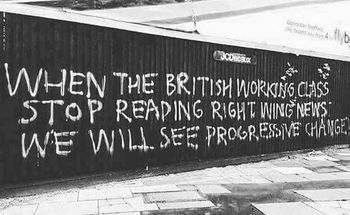 JCDecaux
WHEN THE BRITISH WORKING CLASS
STOP READING RIGHT WING NEWS
WE WILL SEE PROGRESSIVE CHANGE